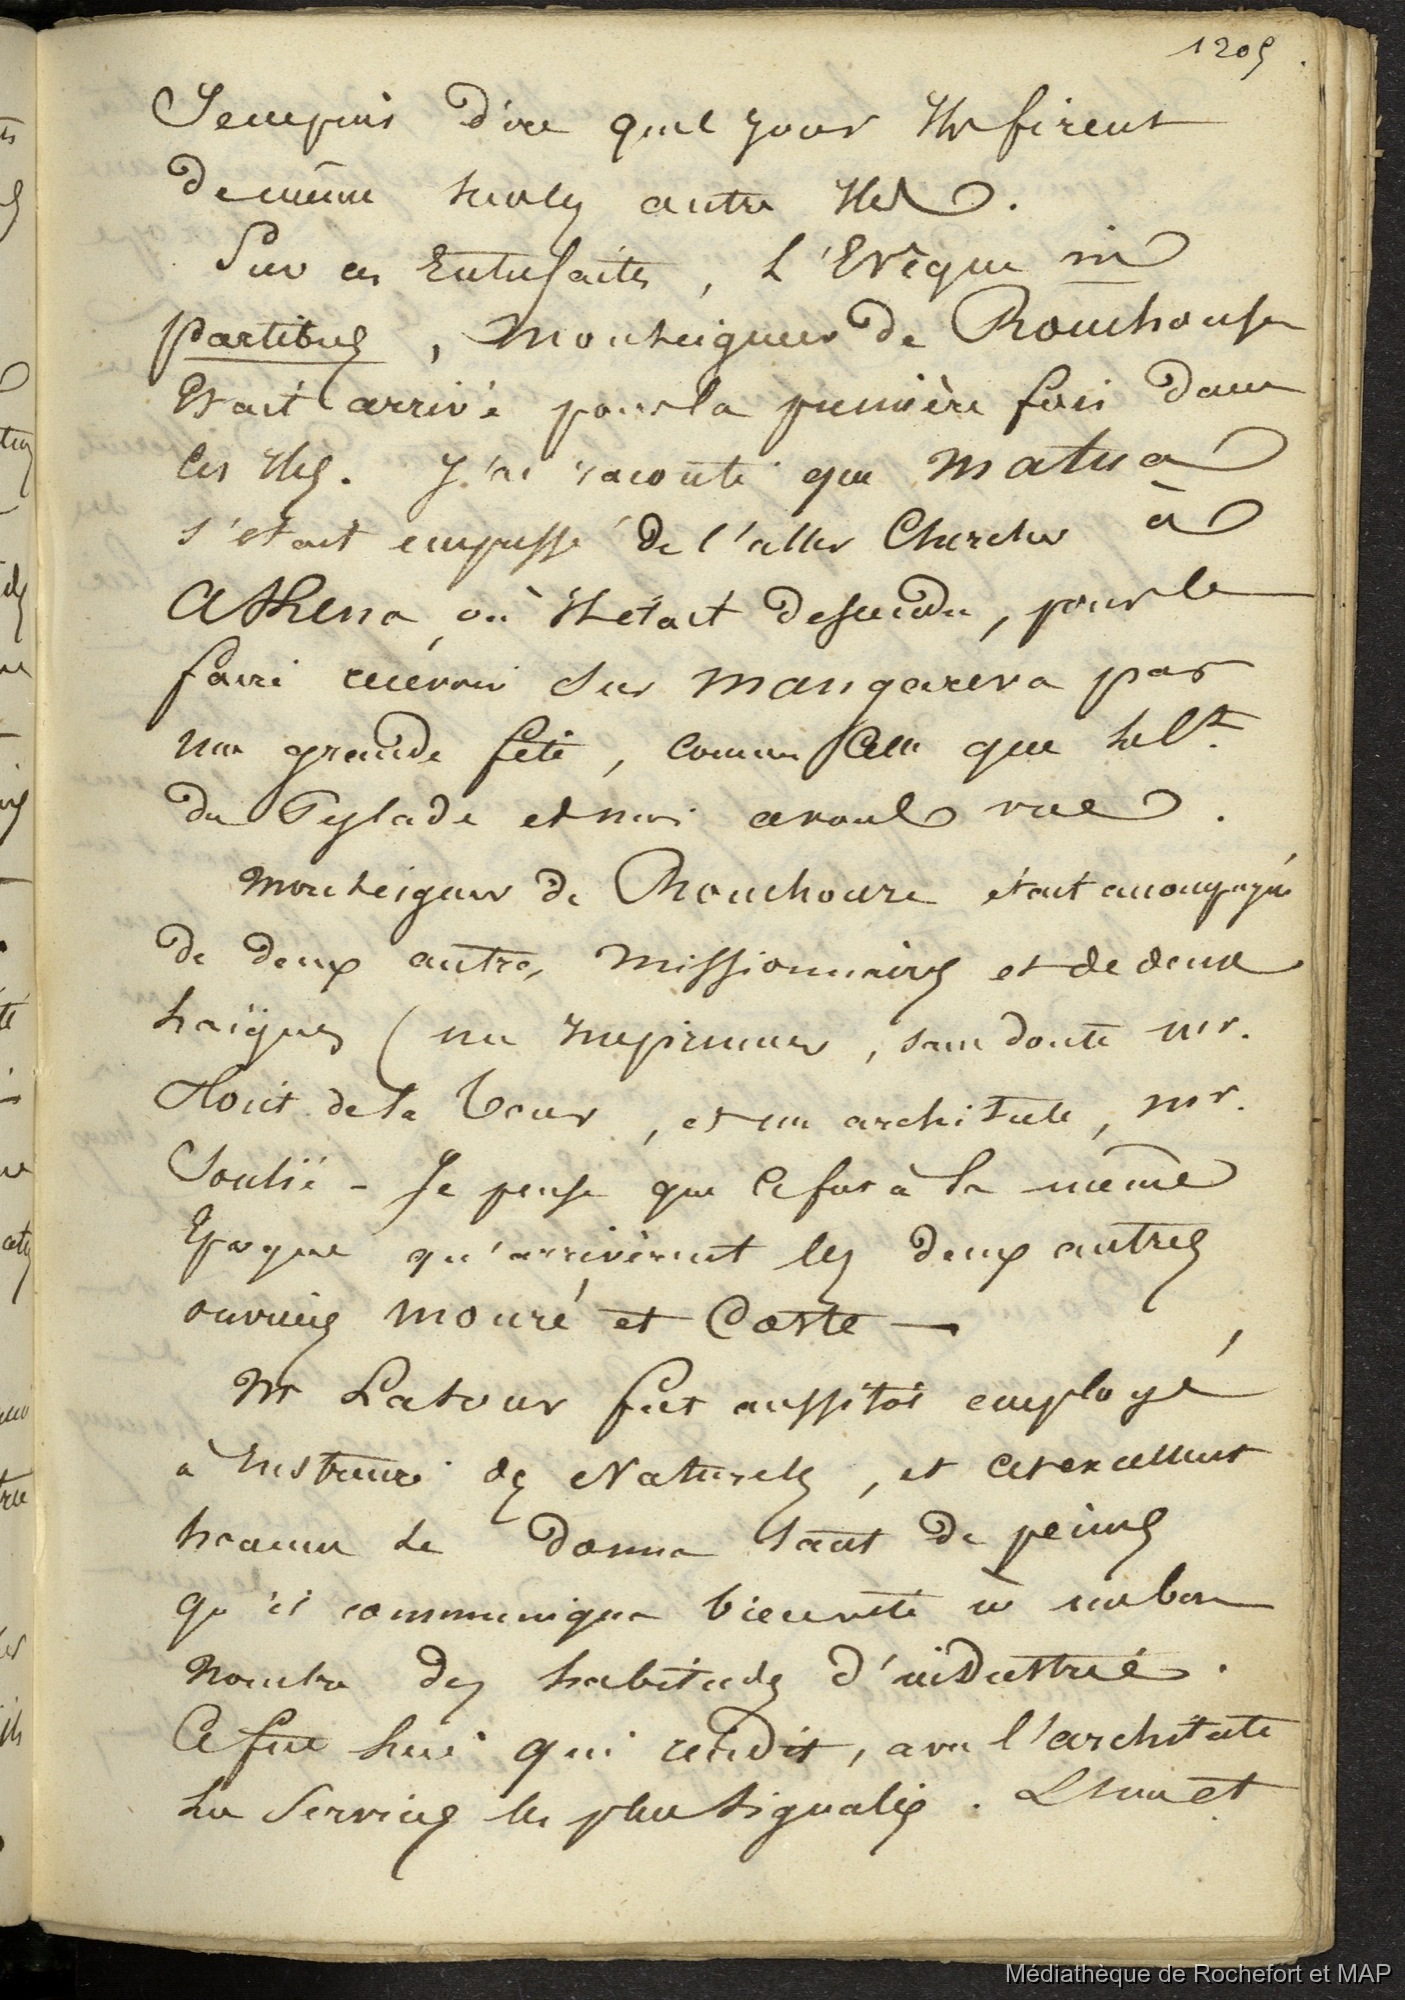 1209.
Je ne puis dire quel jour Ils firent
de même sur les autres Iles.
Sur ces Entrefaites, L'Evêque in
partibus, Monseigneur de Rouchouse
Etait arrivé pour la première fois dans
ces Iles. J'ai raconté que Matua
s'etait empressé de l'aller Chercher à
AKena, où Il etait descendu, pour le
faire recevoir sur Mangareva par
une grande fete, comme Celle que le Ct.
du Pylade et moi avons vue.
Monseigneur de Rouchouze était accompagné
de deux autres Missionnaires et de deux
laïques (un Imprimeur, sans doute mr.
de la Tour, et un architecte, mr.
Soulié - Je pense que Ce fut à la même
Epoque qu'arrivèrent les deux autres
ouvriers Mouré et Coste —
Mr Latour fut aussitôt employé
à Instruire des Naturels, et Cet excellent
homme se donna tant de peines
qu'il communiqua bien vite à un bon
nombre des habitudes d'industrie.
Ce fut lui qui rendit, avec l'architecte
les Services les plus signalés. L'un et
Médiathèque de Rochefort et MAP